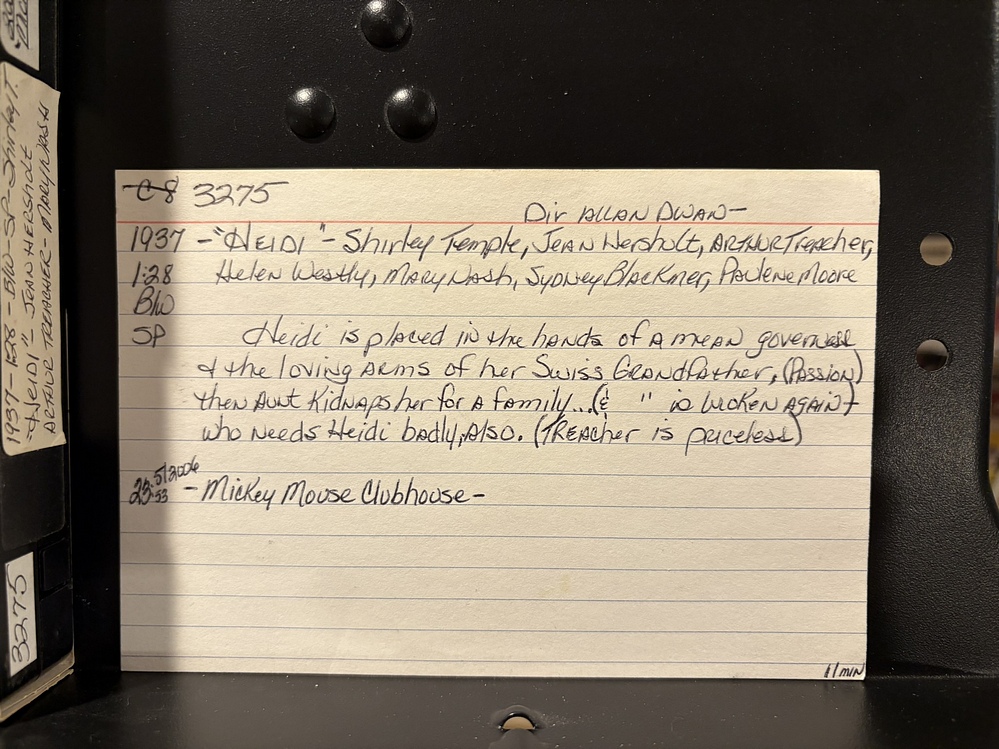 C-8 3275
Dir ALLAN DWAN-
1937 - "HEIDI" - Shirley Temple, JEAN Hersholt, ARTHUR TREACHER,
1:28 Helen Westly, MARY NASH, SYDNEY BLACKMER, PAULENE MOORE
B/W
SP Heidi is placed in the hands of A mean governess
& the loving ARMS of her Swiss GRANDfather, (PASSION)
then AUNT Kidnaps her for A family...(& " is broken AGAIN)
who needs Heidi badly, Also. (TREACHER is priceless)
5/2006
23:53 - Mickey Mouse Clubhouse -
11 min
1937 - 1:28 - B/W - SP - Shirley T.
"HEIDI" - JEAN HERSHOLT
ARTHUR TREACHER - MARY NASH
3275